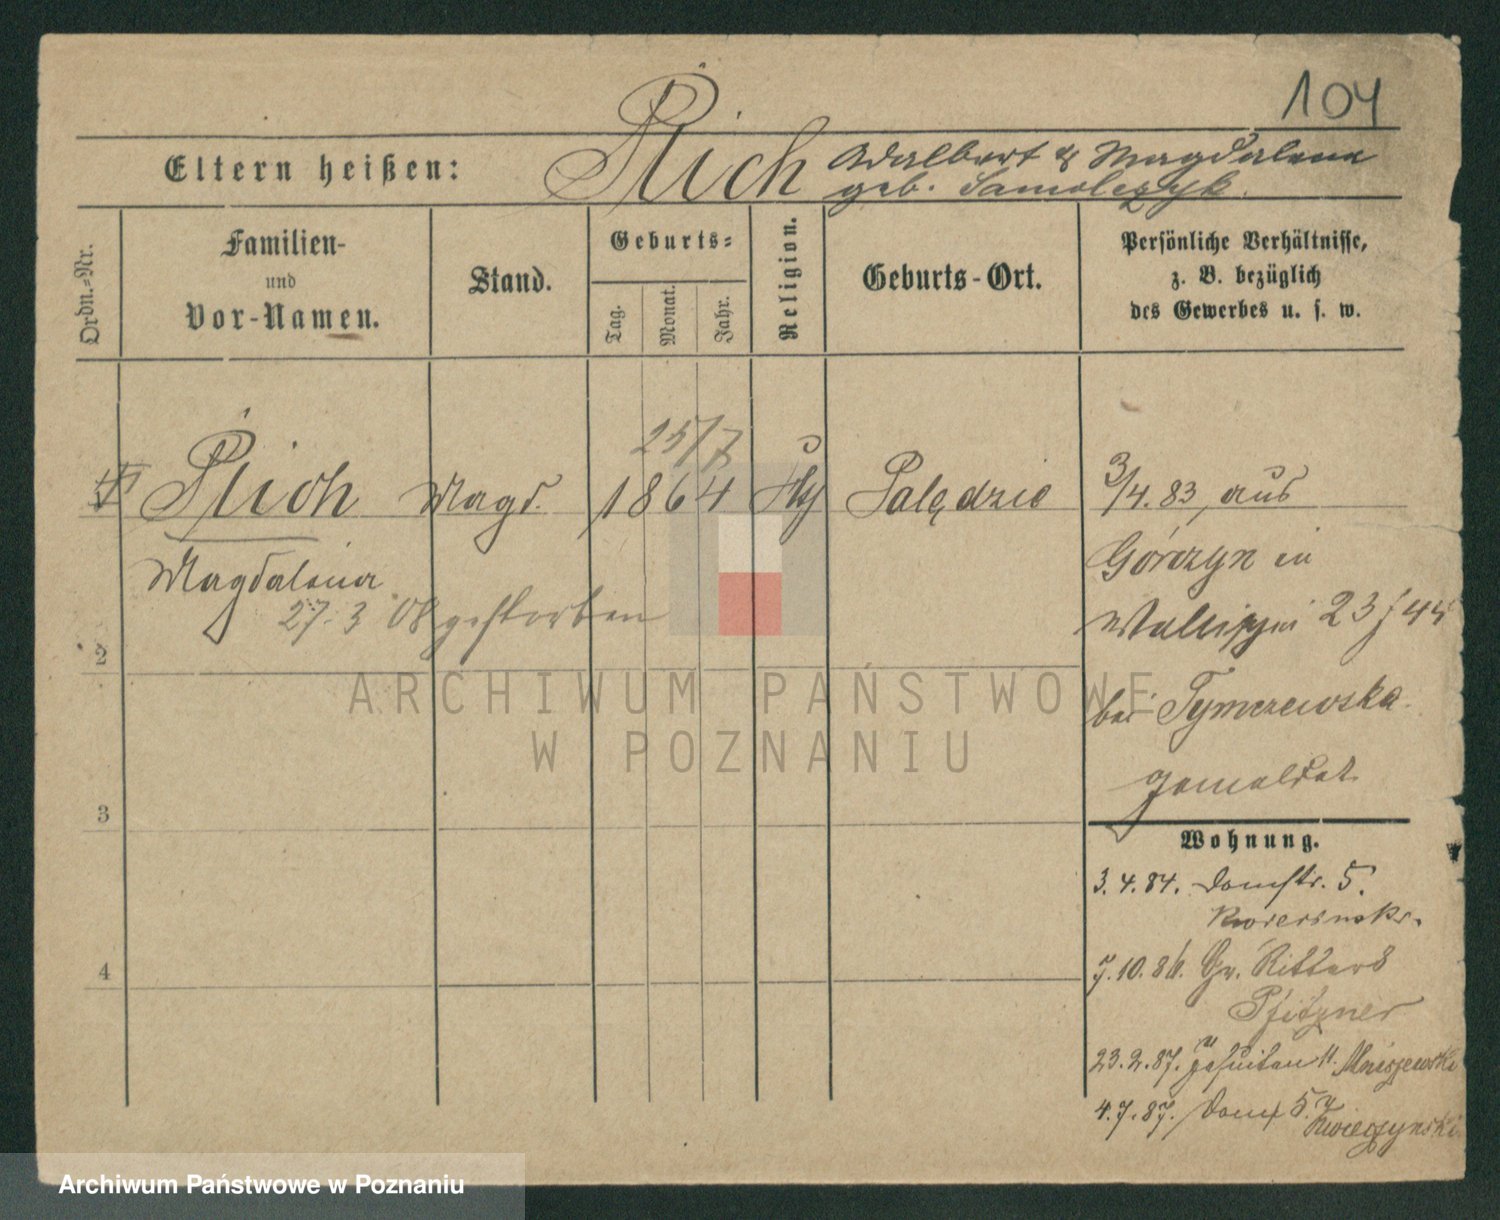 104
Eltern heißen: Rich Adalbert & Magdalena
geb. Samolczyk.
Ordn.-Nr.
Familien-
und
Vor-Namen.
Stand.
Geburts-
Tag.
Monat.
Jahr.
Religion.
Geburts-Ort.
Persönliche Verhältnisse,
z. B. bezüglich
des Gewerbes u. s. w.
25/7
Rich Magd. 1864 Palędzie 3/4.83, aus
Magdalena Górczyn in
27.3 08 gestorben Wallischei 23 / 44
2
bei Tymczewska
gemeldet
3
Wohnung.
3.4.84. Domstr. 5.
4
7.10.86. Gr. Ritters
Pfitzner
23.2.87. Jesuiten 11. Mniszewski
4.7.87. Dom 5.
Kwieczynski
ARCHIWUM PAŃSTWOWE
W POZNANIU
Archiwum Państwowe w Poznaniu